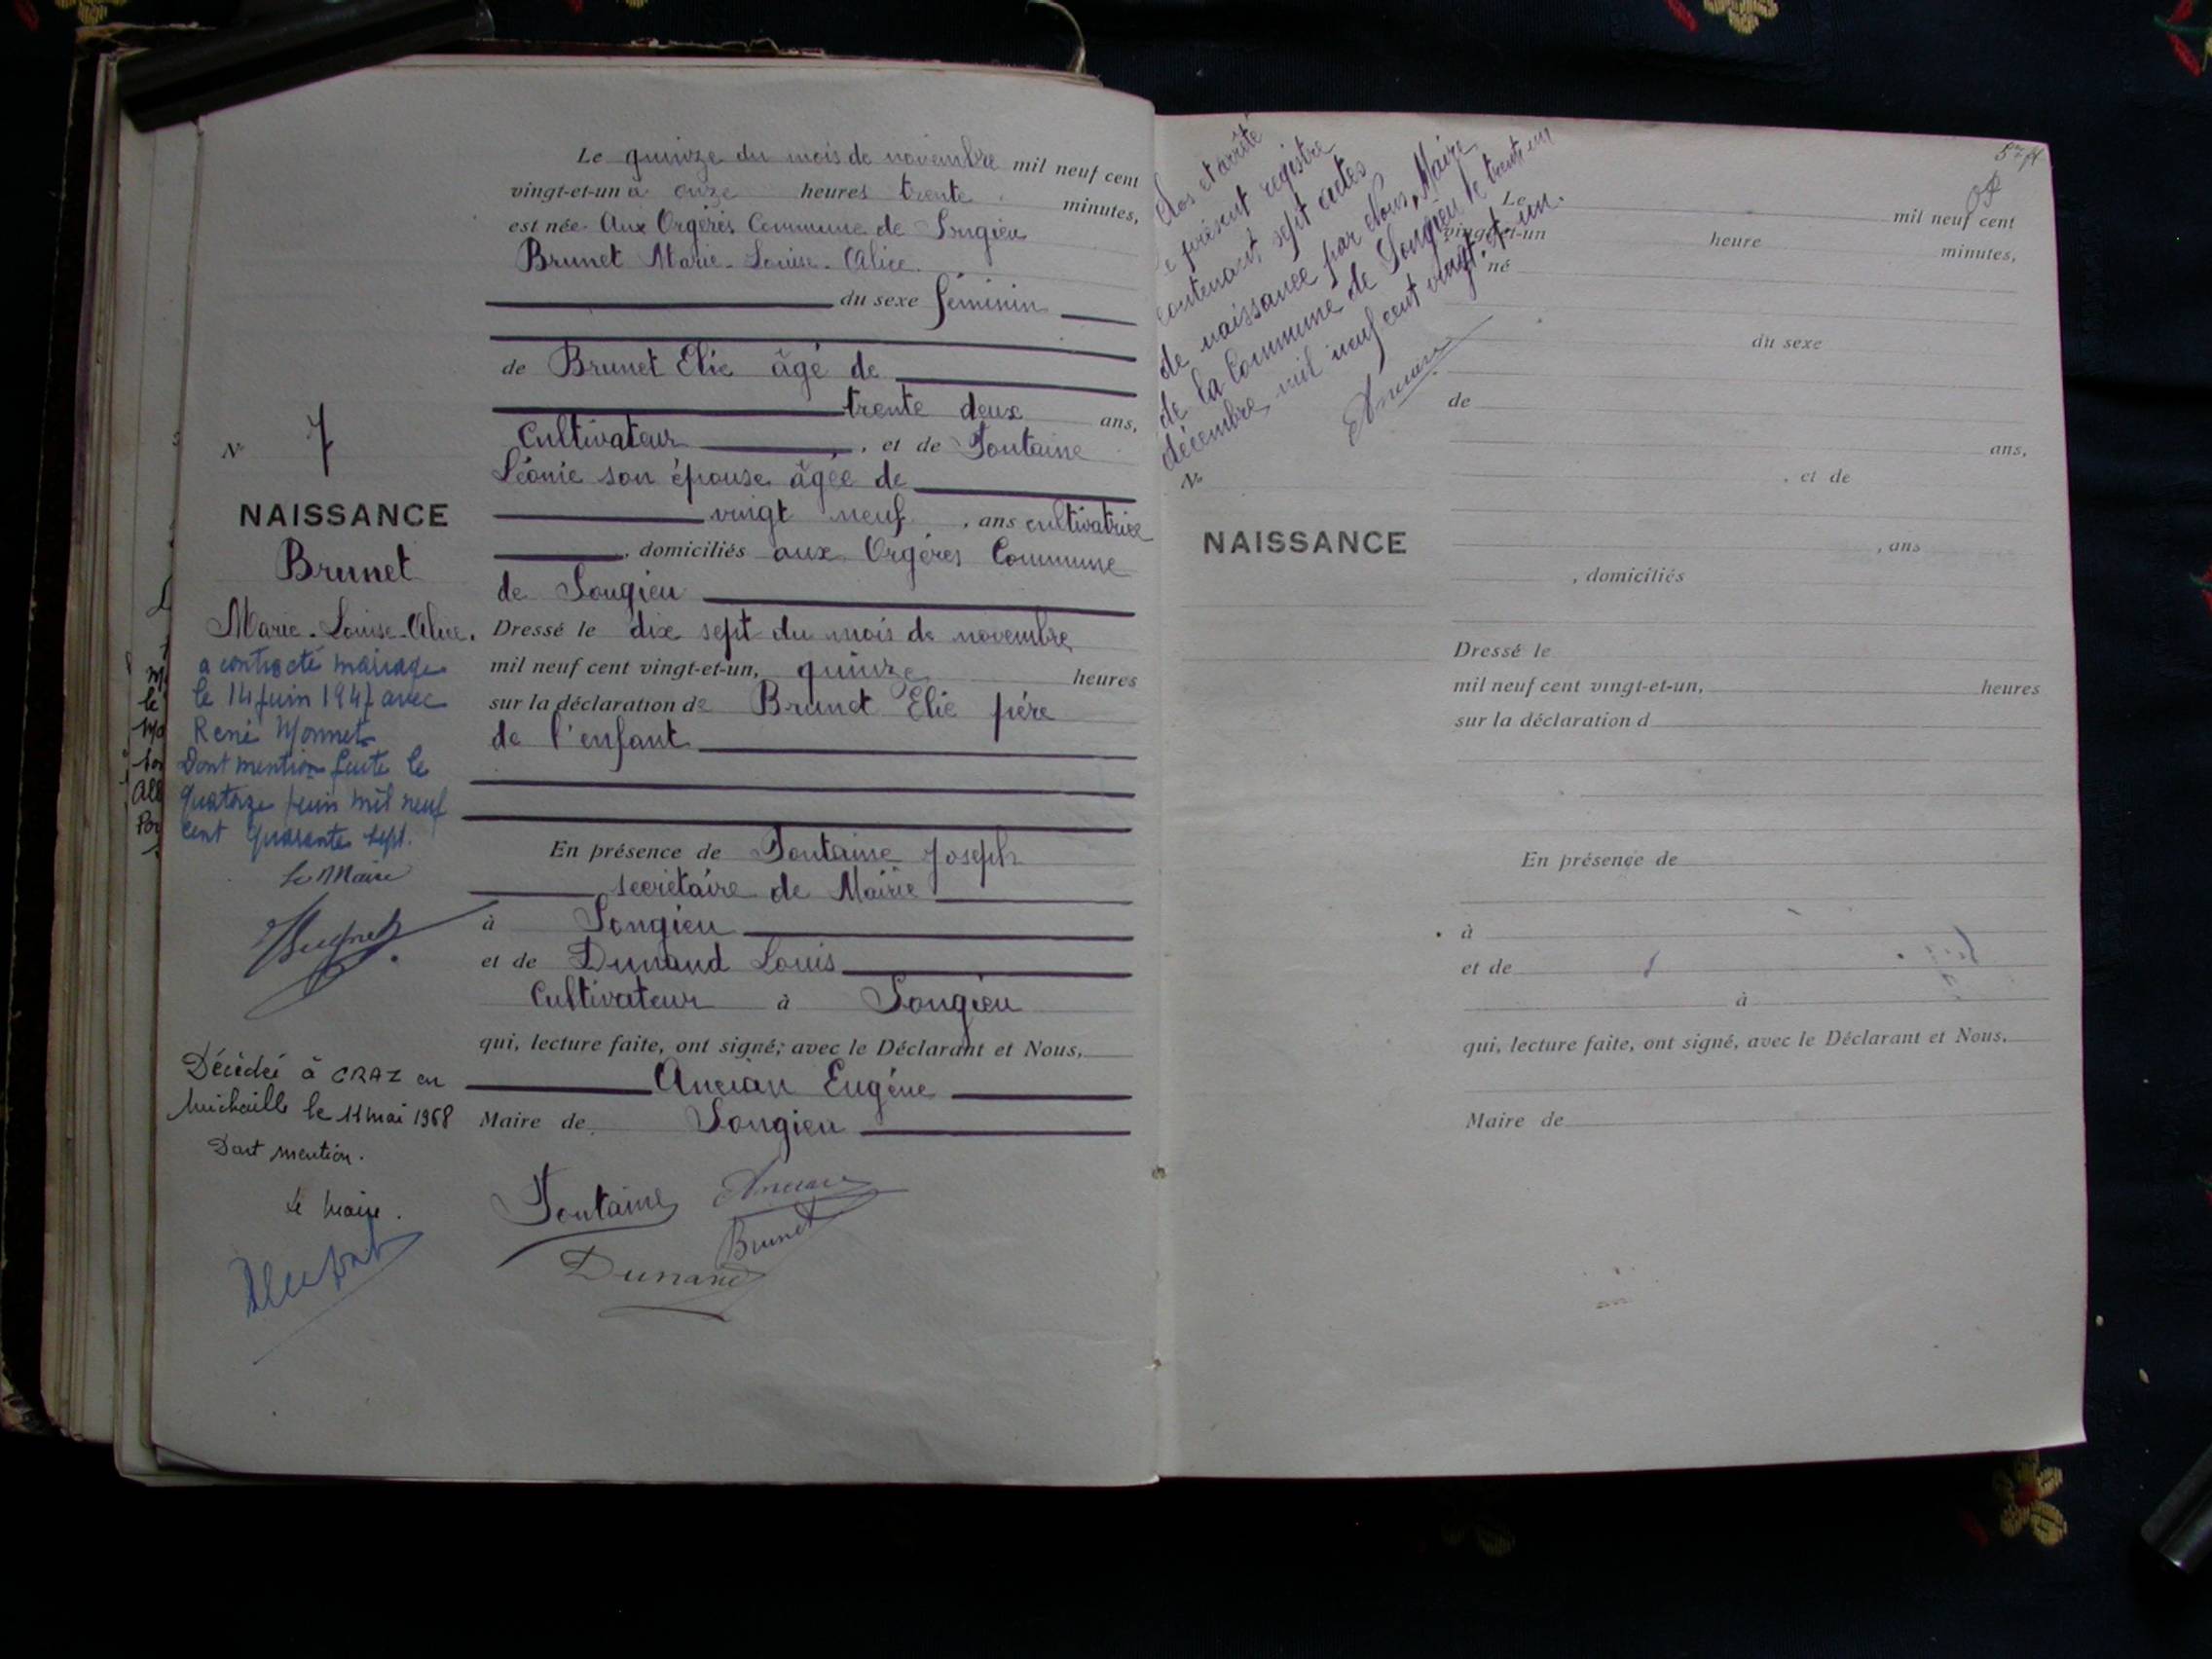 Le quinze du mois de novembre mil neuf cent
vingt-et-un à onze heures trente minutes,
est née Aux Orgères Commune de Songieu
Brunet Marie-Louise-Alice.
du sexe féminin
de Brunet Elie âgé de
trente deux ans,
Cultivateur, et de Fontaine
Léonie son épouse âgée de
vingt neuf, ans cultivatrice
, domiciliés aux Orgères Commune
de Songieu
Dressé le dix sept du mois de novembre
mil neuf cent vingt-et-un, quinze heures
sur la déclaration de Brunet Elie père
de l'enfant
En présence de Fontaine Joseph
secrétaire de Mairie
à Songieu
et de Dunand Louis
Cultivateur à Songieu
qui, lecture faite, ont signé; avec le Déclarant et Nous,
Ancian Eugène
Maire de Songieu
Fontaine Ancian
Brunet
Dunand
N° 7
NAISSANCE
Brunet
Marie-Louise-Alice.
a contracté mariage
le 14 juin 1947 avec
René Monnet
Dont mention faite le
quatorze juin mil neuf
cent quarante sept.
Le Maire
Décédée à CRAZ en
Michaille le 11 mai 1968
Dont mention.
Le Maire.
Clos et arrêté
le présent registre
contenant sept actes
de naissance par Nous, Maire
de la Commune de Songieu le trente un
décembre mil neuf cent vingt-et-un.
Ancian
N°
NAISSANCE
Le mil neuf cent
vingt-et-un heure minutes,
né
du sexe
de
ans,
, et de
, ans
, domiciliés
Dressé le
mil neuf cent vingt-et-un, heures
sur la déclaration d
En présence de
à
et de
à
qui, lecture faite, ont signé, avec le Déclarant et Nous,
Maire de